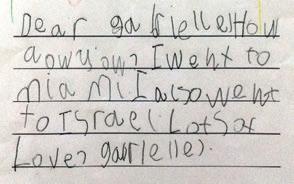 Dear gabrielle How
aowyou? I went to
mia mi I also went
to Israel. Lots of
Love, gabrielle.